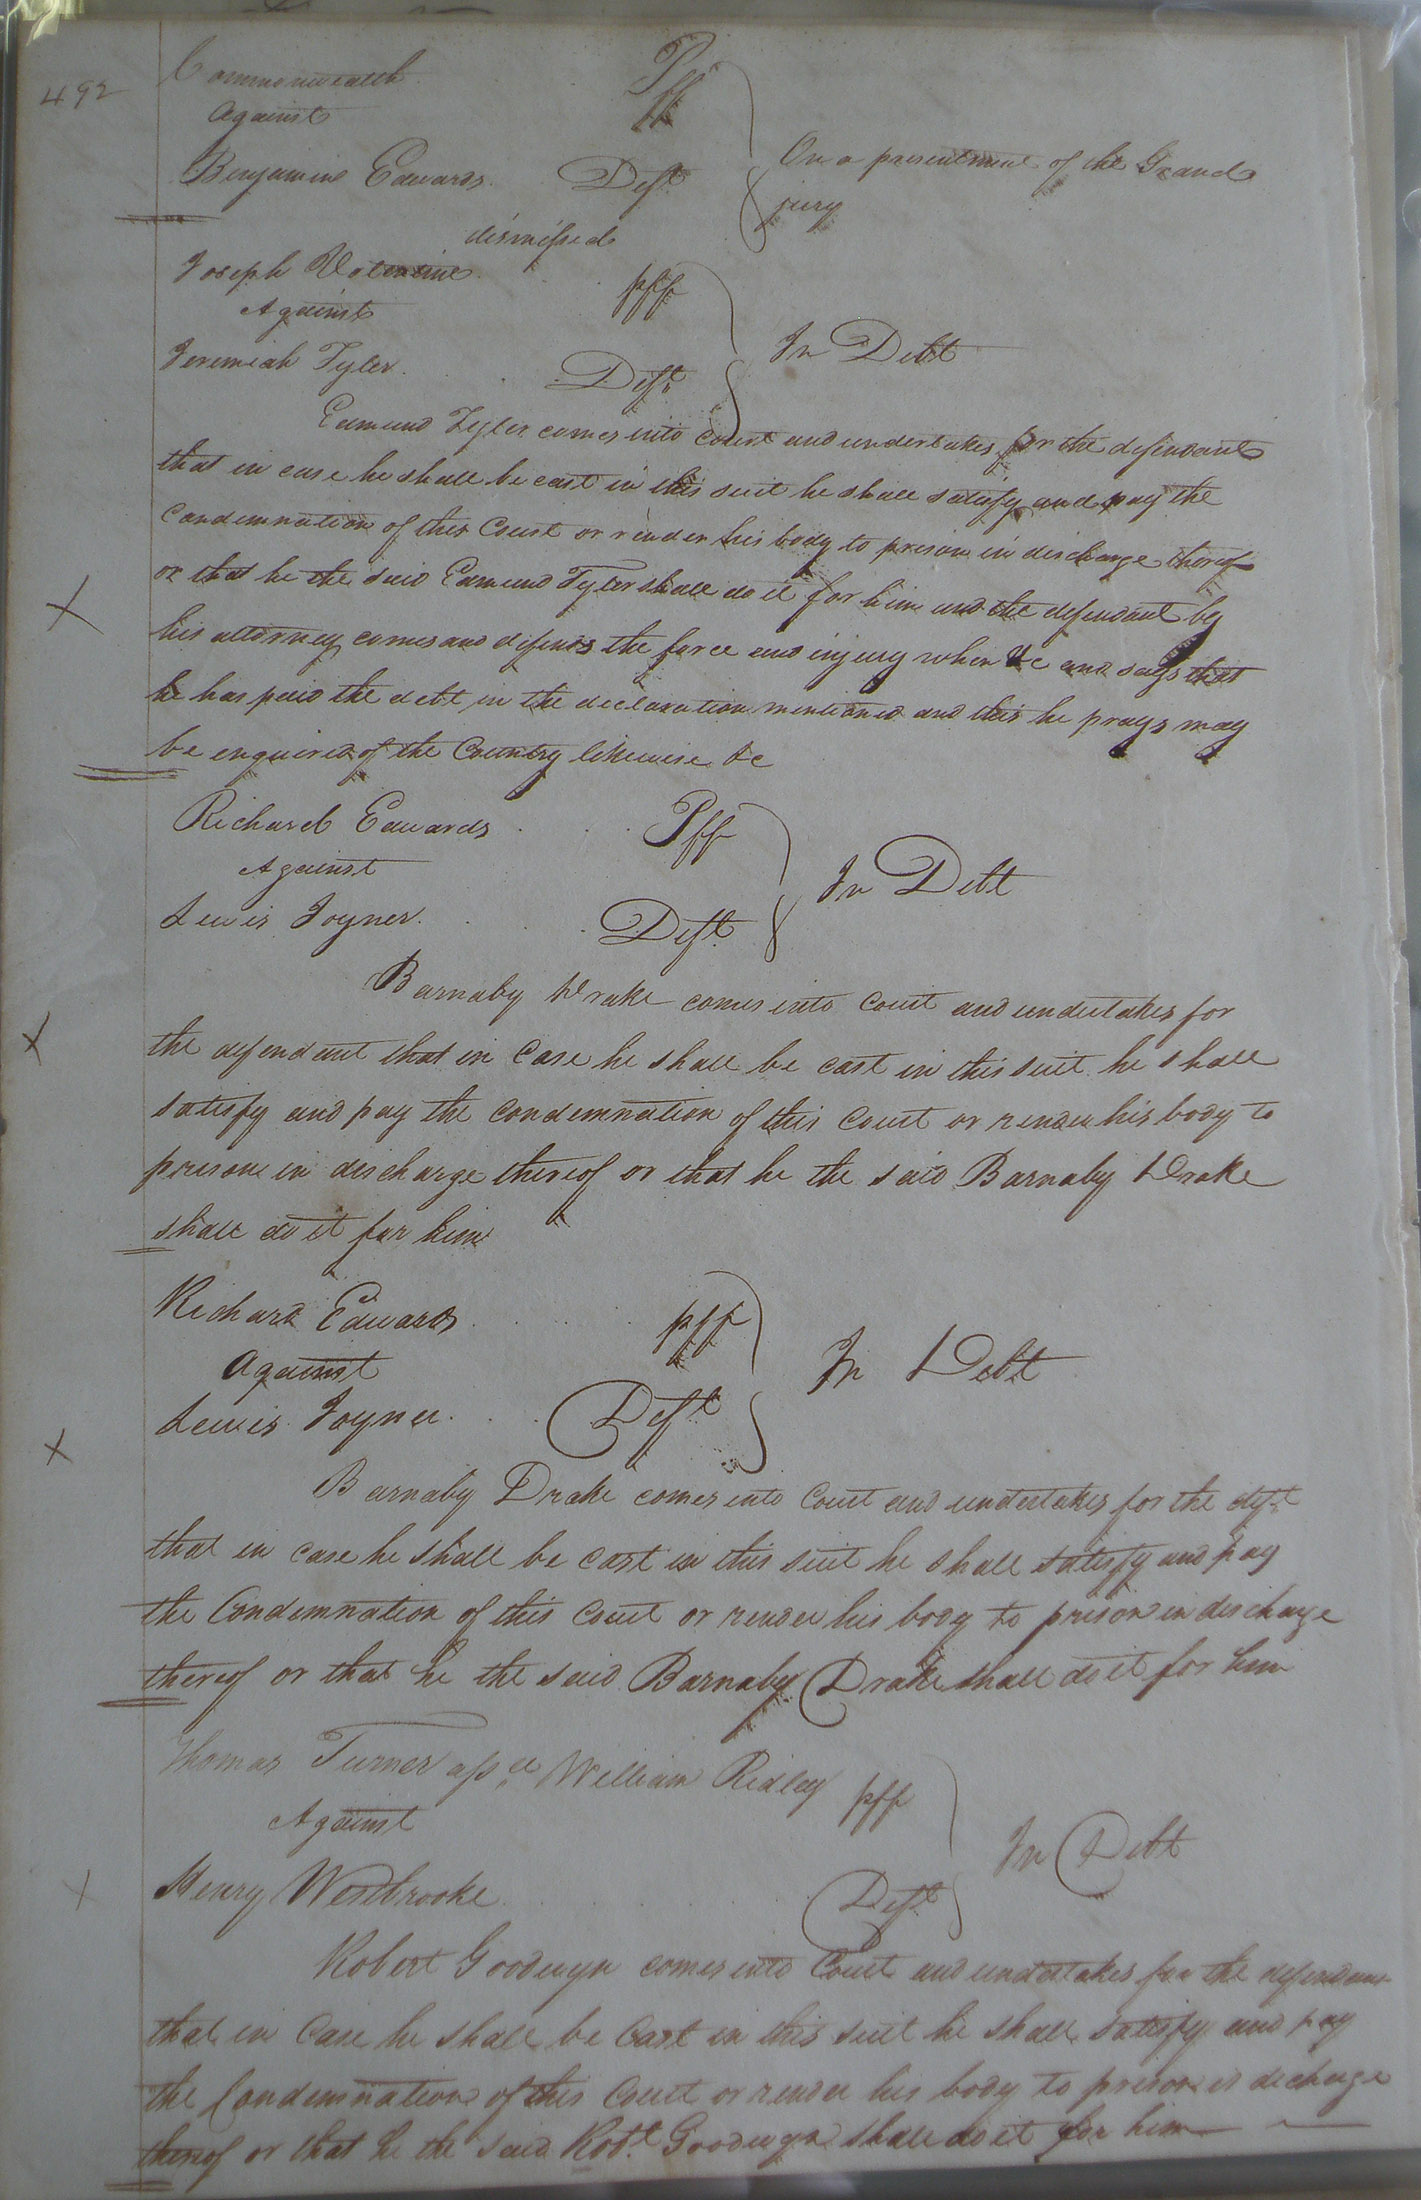 492
Commonwealth Plf
Against
Benjamine Edwards Deft
On a presentment of the Grand
jury
dismissed
Joseph Valentine plf
Against
Jeremiah Tyler Deft
In Debt
Edmund Tyler comes into court and undertakes for the defendant
that in case he shall be cast in this suit he shall satisfy and pay the
condemnation of this Court or render his body to prison in discharge thereof
or that he the said Edmund Tyler shall do it for him and the defendant by
his attorney comes and defends the force and injury when &c and says that
he has paid the debt in the declaration mentioned and this he prays may
be enquired of the Country likewise &c
Richard Edwards Plf
Against
Lewis Joyner Deft
In Debt
Barnaby Drake comes into Court and undertakes for
the defendant that in Case he shall be cast in this suit he shall
satisfy and pay the condemnation of this Court or render his body to
prison in discharge thereof or that he the said Barnaby Drake
shall do it for him
Richard Edwards plf
Against
Lewis Joyner Deft
In Debt
Barnaby Drake comes into Court and undertakes for the deft
that in case he shall be cast in this suit he shall satisfy and pay
the Condemnation of this Court or render his body to prison in discharge
thereof or that he the said Barnaby Drake shall do it for him
Thomas Turner assee William Ridley plf
Against
Henry Westbrooke Deft
In Debt
Robert Goodwyn comes into Court and undertakes for the defendant
that in Case he shall be Cast in this suit he shall satisfy and pay
the Condemnation of this Court or render his body to prison in discharge
thereof or that he the said Robt Goodwyn shall do it for him